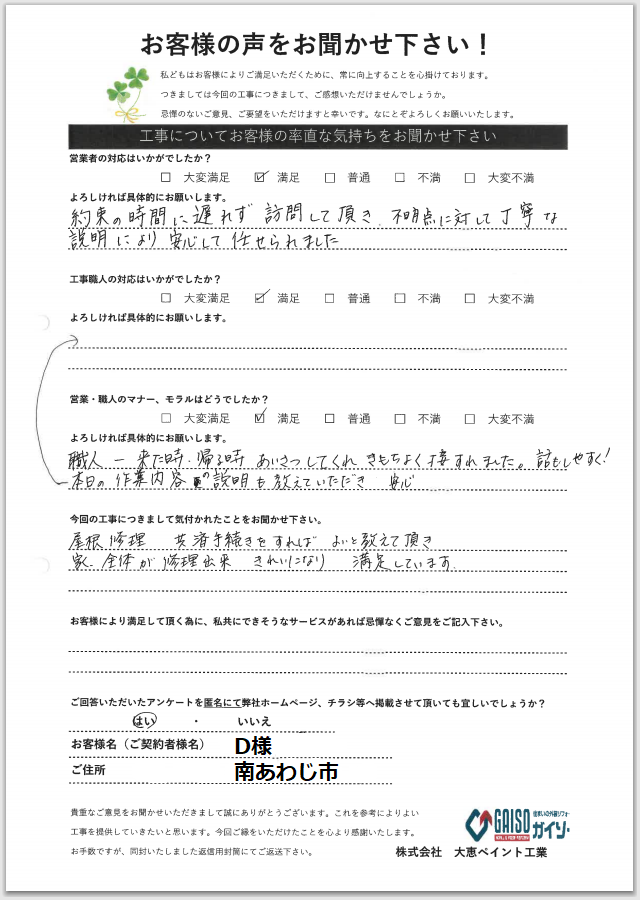 お客様の声をお聞かせ下さい！
私どもはお客様によりご満足いただくために、常に向上することを心掛けております。
つきましては今回の工事につきまして、ご感想いただけませんでしょうか。
忌憚のないご意見、ご要望をいただけますと幸いです。なにとぞよろしくお願いいたします。
工事についてお客様の率直な気持ちをお聞かせ下さい
営業者の対応はいかがでしたか？
□ 大変満足 ☑ 満足 □ 普通 □ 不満 □ 大変不満
よろしければ具体的にお願いします。
約束の時間に遅れず 訪問して頂き、不明点に対して丁寧な
説明により安心して任せられました
工事職人の対応はいかがでしたか？
□ 大変満足 ☑ 満足 □ 普通 □ 不満 □ 大変不満
よろしければ具体的にお願いします。
営業・職人のマナー、モラルはどうでしたか？
□ 大変満足 ☑ 満足 □ 普通 □ 不満 □ 大変不満
よろしければ具体的にお願いします。
職人 ー 来た時・帰る時 あいさつしてくれ きもちよく接すれました。話もしやすく！
本日の作業内容の説明も教えていただき 安心
今回の工事につきまして気付かれたことをお聞かせ下さい。
屋根修理 共済手続きをすれば よいと教えて頂き
家、全体が修理出来 きれいになり 満足しています。
お客様により満足して頂く為に、私共にできそうなサービスがあれば忌憚なくご意見をご記入下さい。
ご回答いただいたアンケートを匿名にて弊社ホームページ、チラシ等へ掲載させて頂いても宜しいでしょうか？
はい ・ いいえ
お客様名（ご契約者様名） D様
ご住所 南あわじ市
貴重なご意見をお聞かせいただきまして誠にありがとうございます。これを参考によりよい
工事を提供していきたいと思います。今回ご縁をいただけたことを心より感謝いたします。
お手数ですが、同封いたしました返信用封筒にてご返送下さい。
GAISO
住まいの外装リフォー
ガイソー
株式会社 大恵ペイント工業